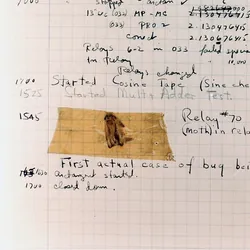 stopped - arctan
13"uc (032) MP - MC
(033) PRO 2
2.130476415
conv
2.130676415
Relays 6-2 in 033 failed special
in relay
10,000
Relays changed
1700 Started Cosine Tape (Sine chec
1525 Started Multi Adder Test.
1545 Relay #70
(Moth) in rela
First actual case of bug bei
antangent started.
1700 closed down.